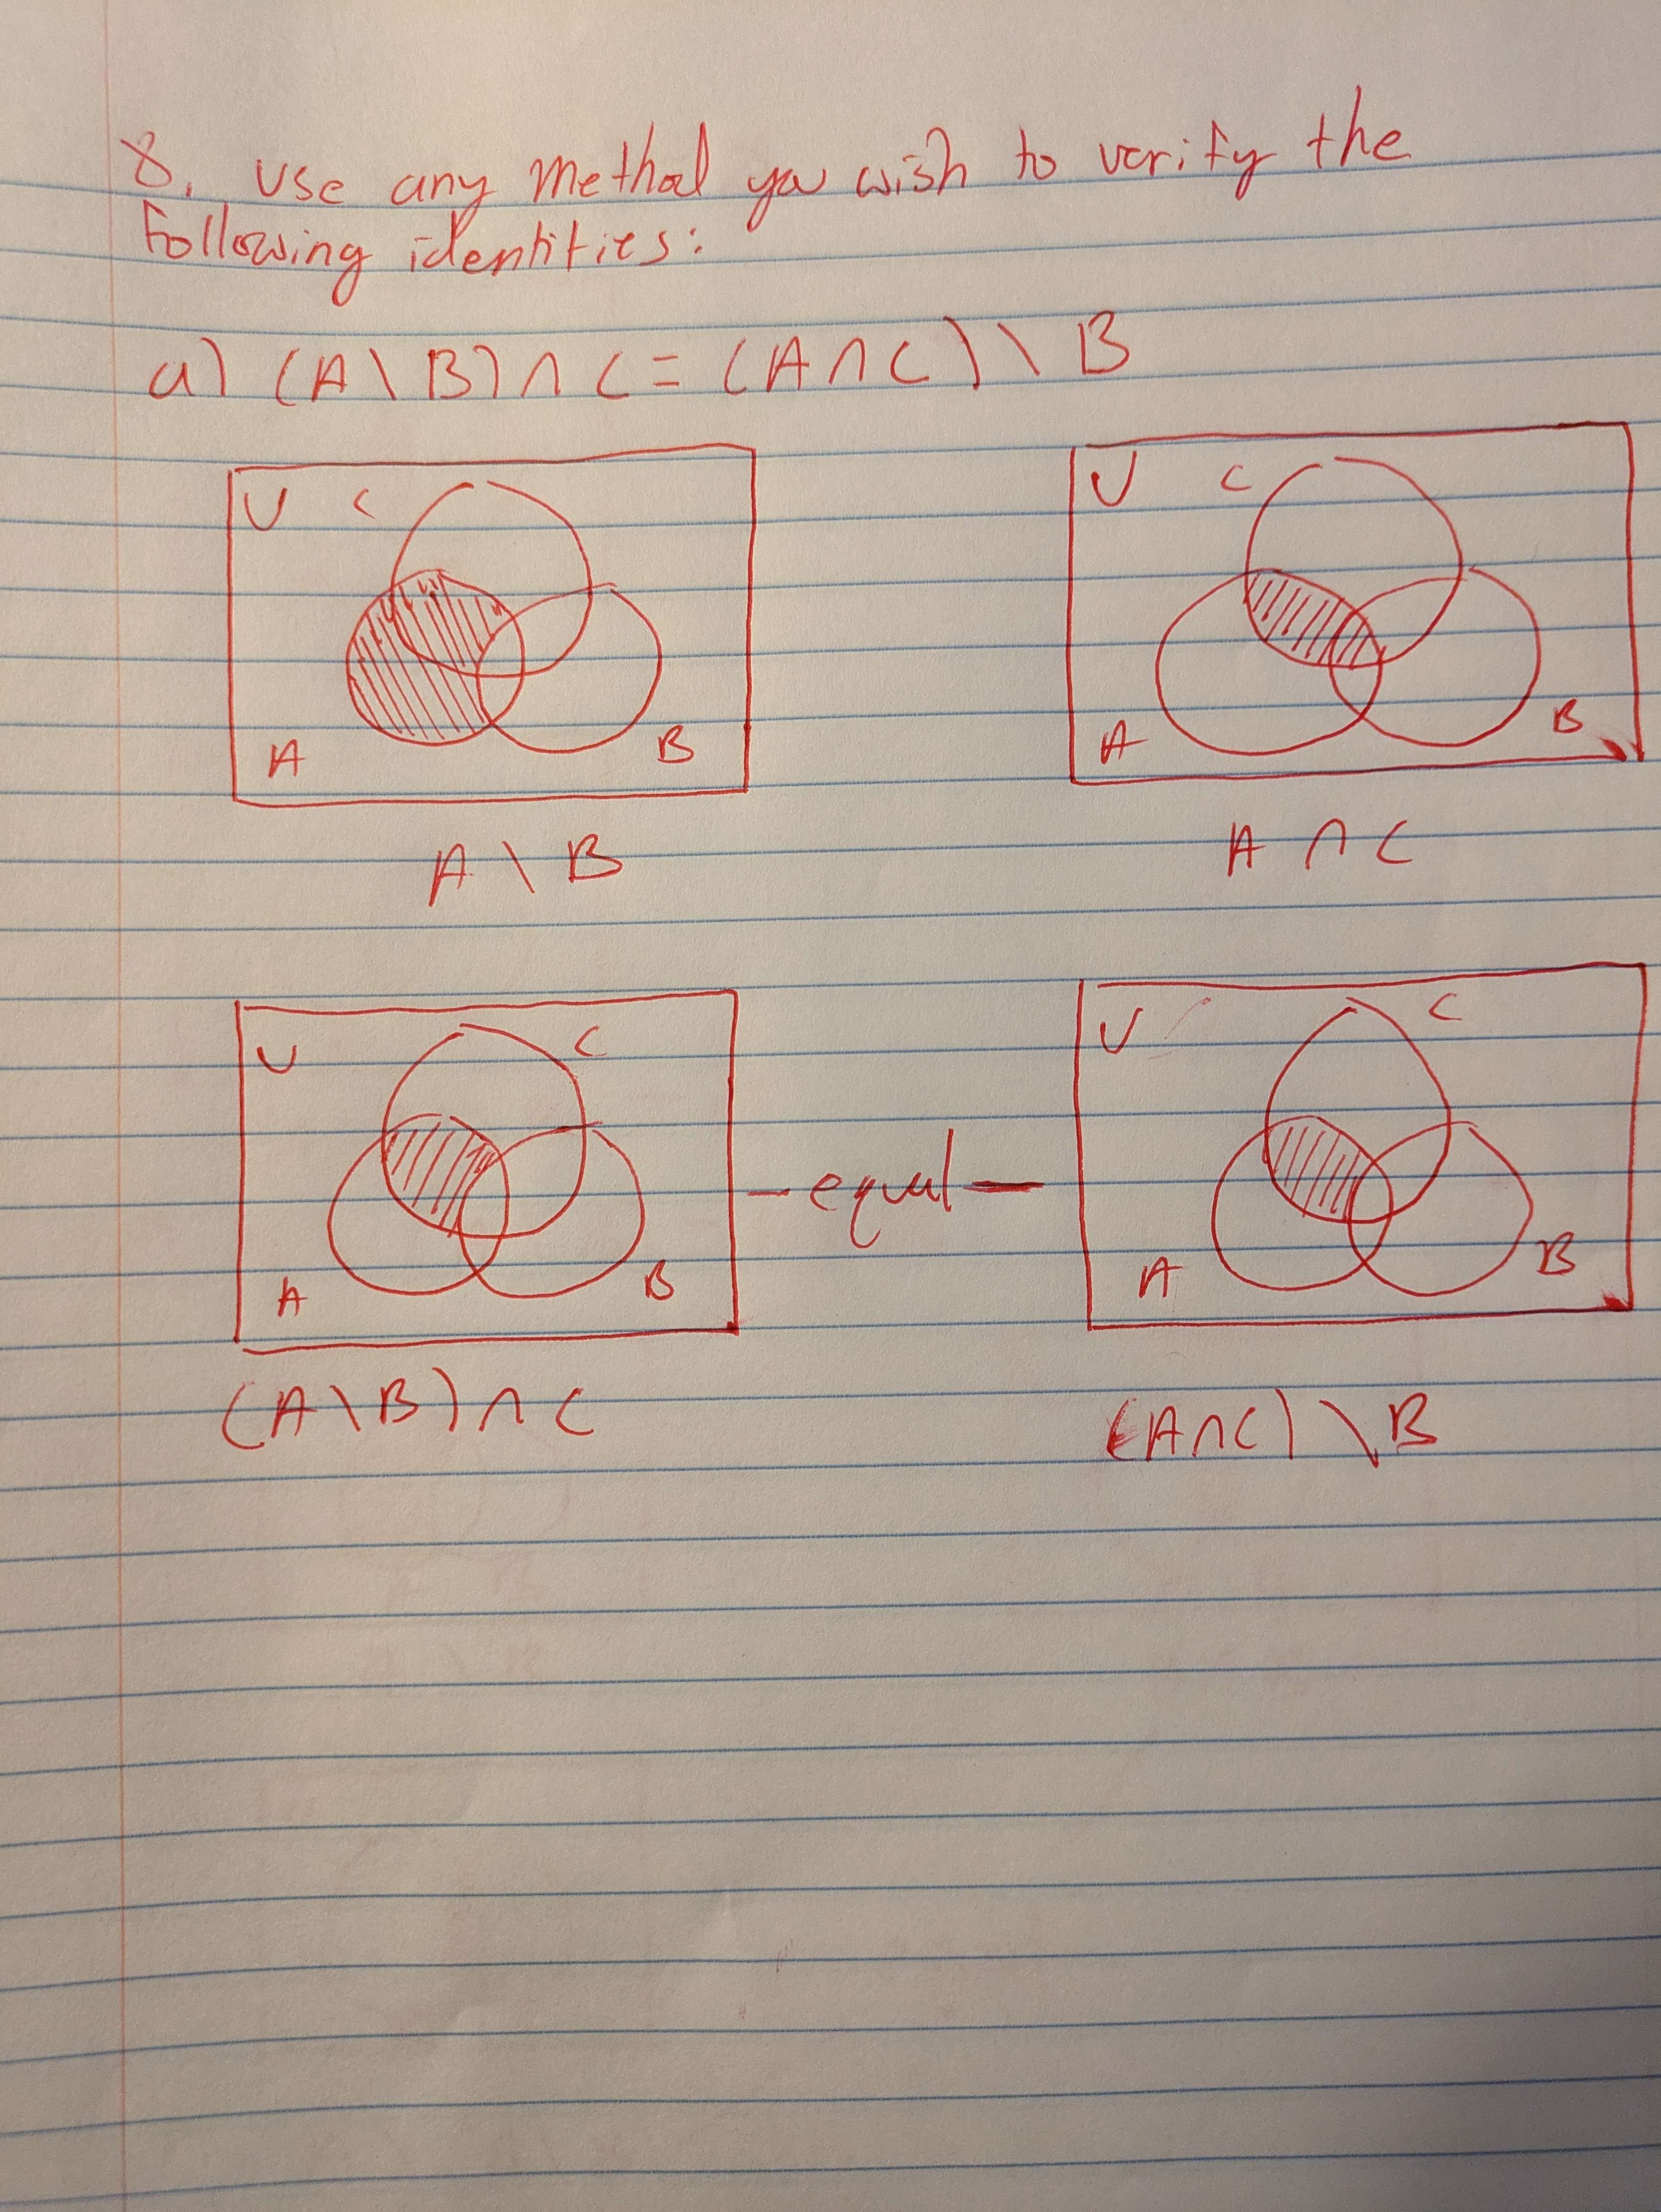 8. Use any method you wish to verify the
following identities:
a) (A \ B) ∩ C = (A ∩ C) \ B
U C
A B
A \ B
U C
A B
A ∩ C
U C
A B
(A \ B) ∩ C
- equal -
U C
A B
(A ∩ C) \ B